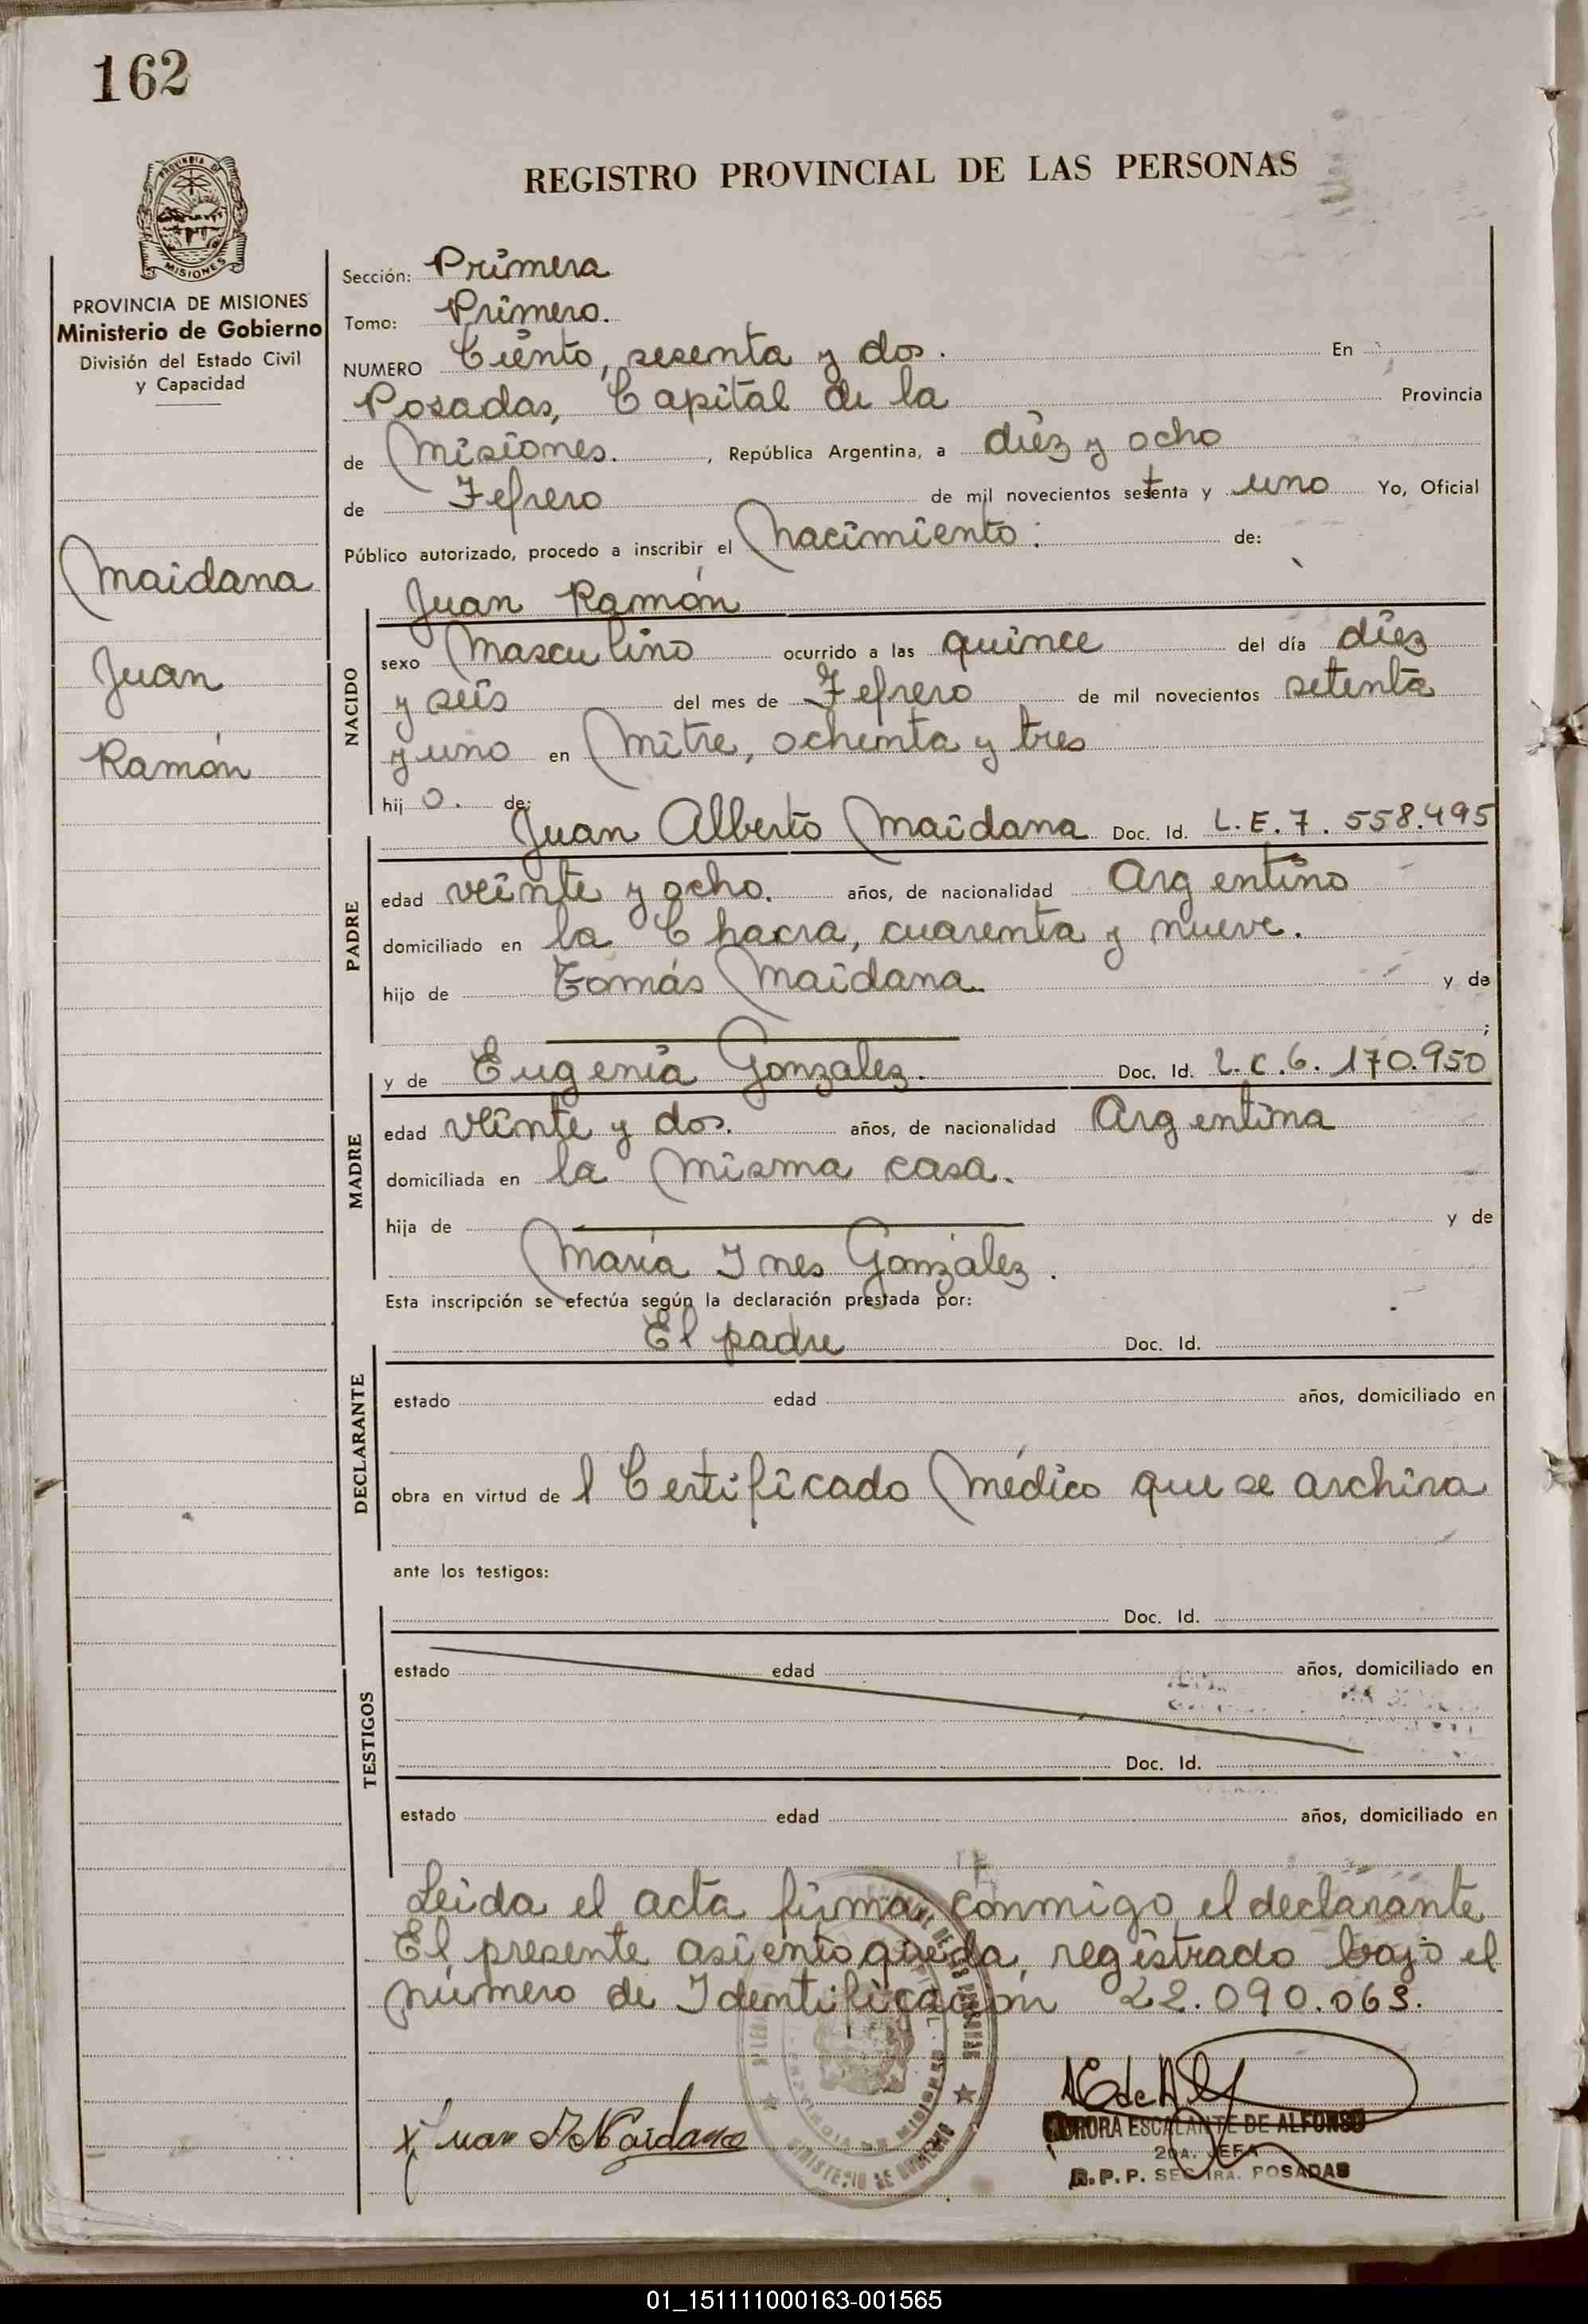 162
REGISTRO PROVINCIAL DE LAS PERSONAS
PROVINCIA DE MISIONES
Ministerio de Gobierno
División del Estado Civil
y Capacidad
Maidana
Juan
Ramón
Sección: Primera
Tomo: Primero.
NUMERO Ciento, sesenta y dos. En
Posadas, Capital de la Provincia
de Misiones. , República Argentina, a diéz y ocho
de Febrero de mil novecientos setenta y uno Yo, Oficial
Público autorizado, procedo a inscribir el Nacimiento: de:
Juan Ramón
NACIDO
sexo Masculino ocurrido a las quince del día diez
y seis del mes de Febrero de mil novecientos setenta
y uno en Mitre, ochenta y tres
hij o. de:
Juan Alberto Maidana Doc. Id. L.E. 7. 558.495
PADRE
edad veinte y ocho. años, de nacionalidad Argentino
domiciliado en la Chacra, cuarenta y nueve.
hijo de Tomás Maidana. y de
;
y de Eugenia Gonzalez. Doc. Id. L.C. 6. 170.950
MADRE
edad veinte y dos. años, de nacionalidad Argentina
domiciliada en la misma casa.
hija de y de
María Ines González.
Esta inscripción se efectúa según la declaración prestada por:
El padre Doc. Id.
DECLARANTE
estado edad años, domiciliado en
obra en virtud de l Certificado Médico que se archiva
ante los testigos:
Doc. Id.
TESTIGOS
estado edad años, domiciliado en
Doc. Id.
estado edad años, domiciliado en
Leida el acta firma conmigo el declarante
El presente asiento queda, registrado bajo el
número de Identificación 22.090.063.
Juan Maidana
AURORA ESCALANTE DE ALFONSO
2DA. JEFA
R.P.P. SEC. 1RA. POSADAS
01_151111000163-001565